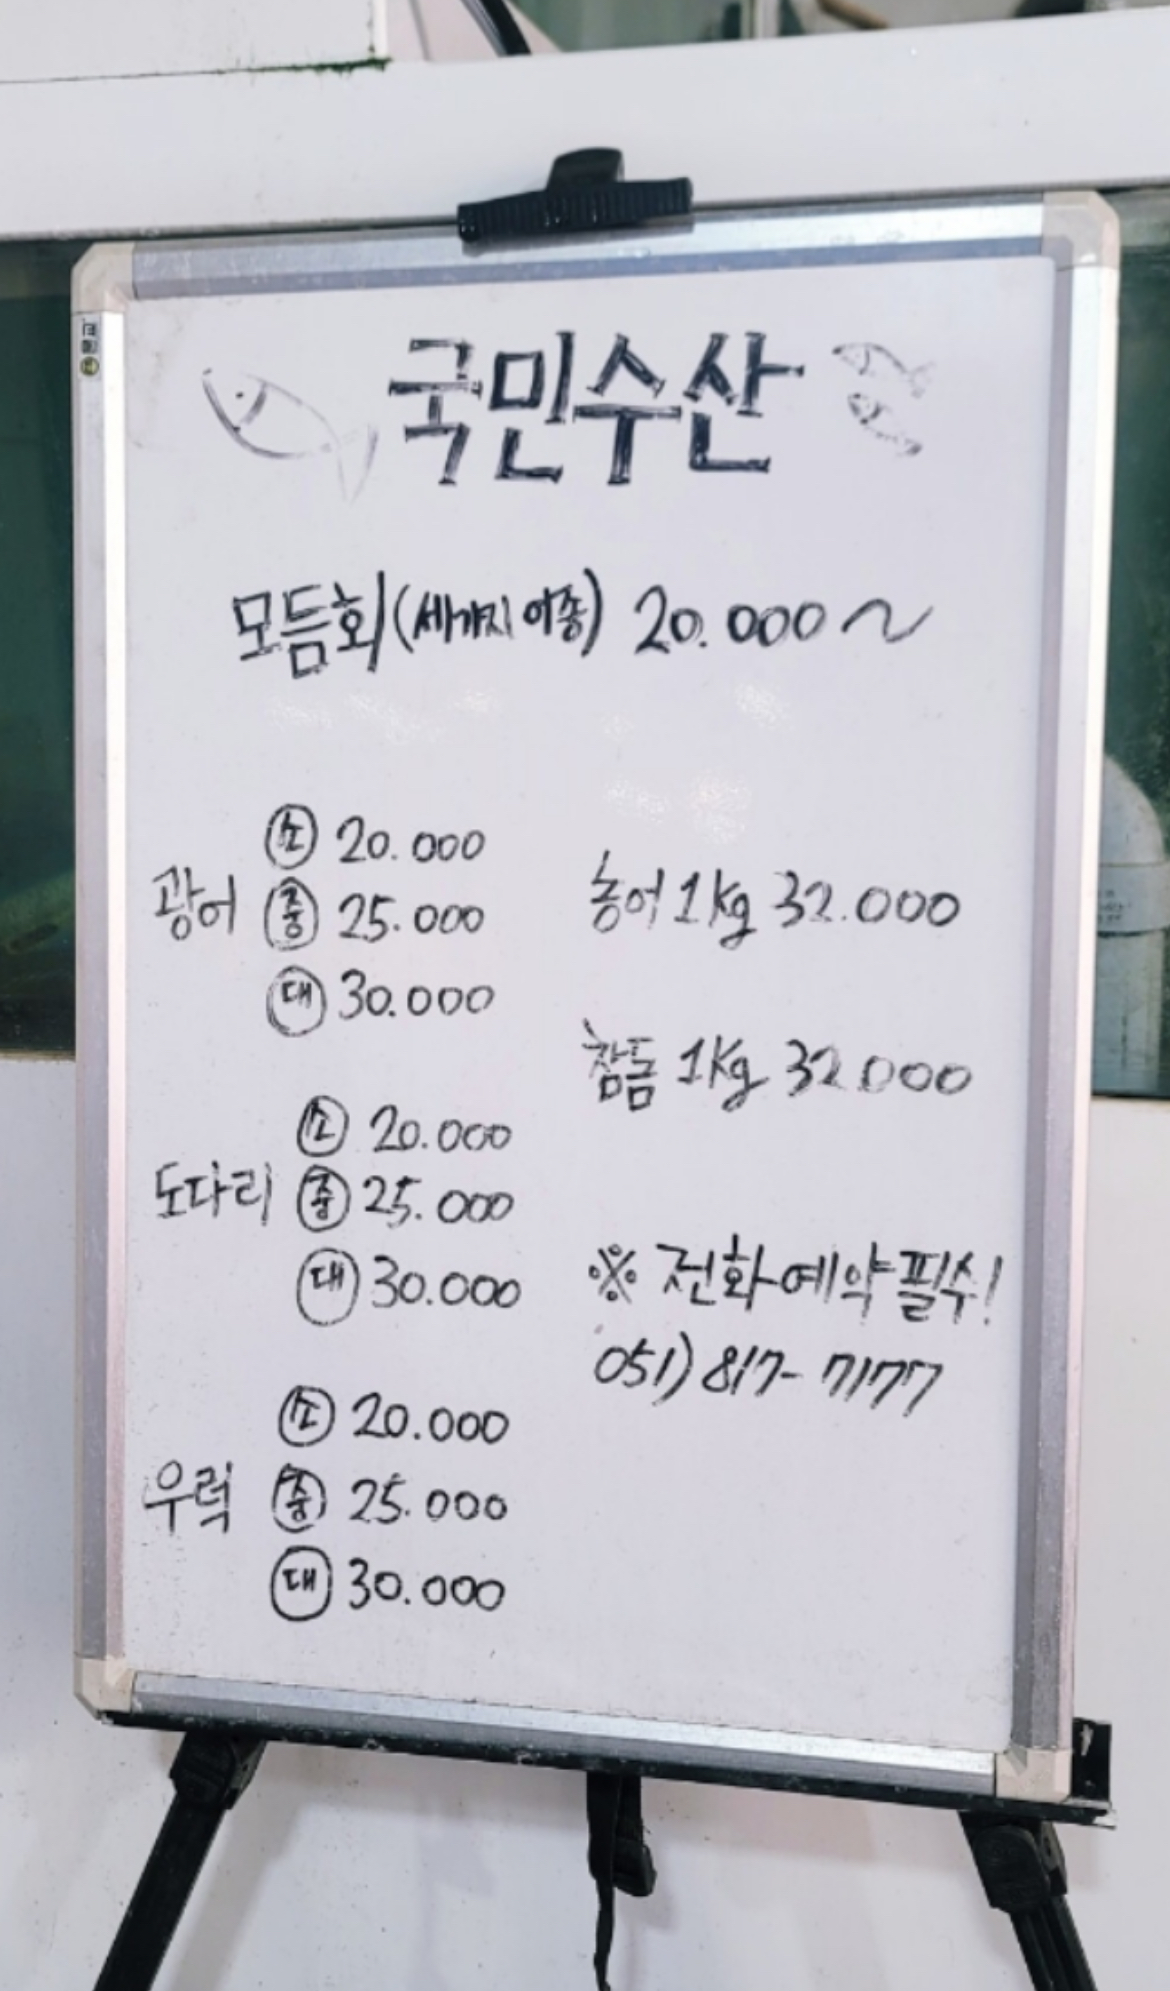 국민수산
모듬회(세가지 어종) 20.000~
광어 소 20.000
중 25.000
대 30.000
도다리 소 20.000
중 25.000
대 30.000
우럭 소 20.000
중 25.000
대 30.000
농어 1kg 32.000
참돔 1kg 32.000
※ 전화예약필수!
051) 817-7177